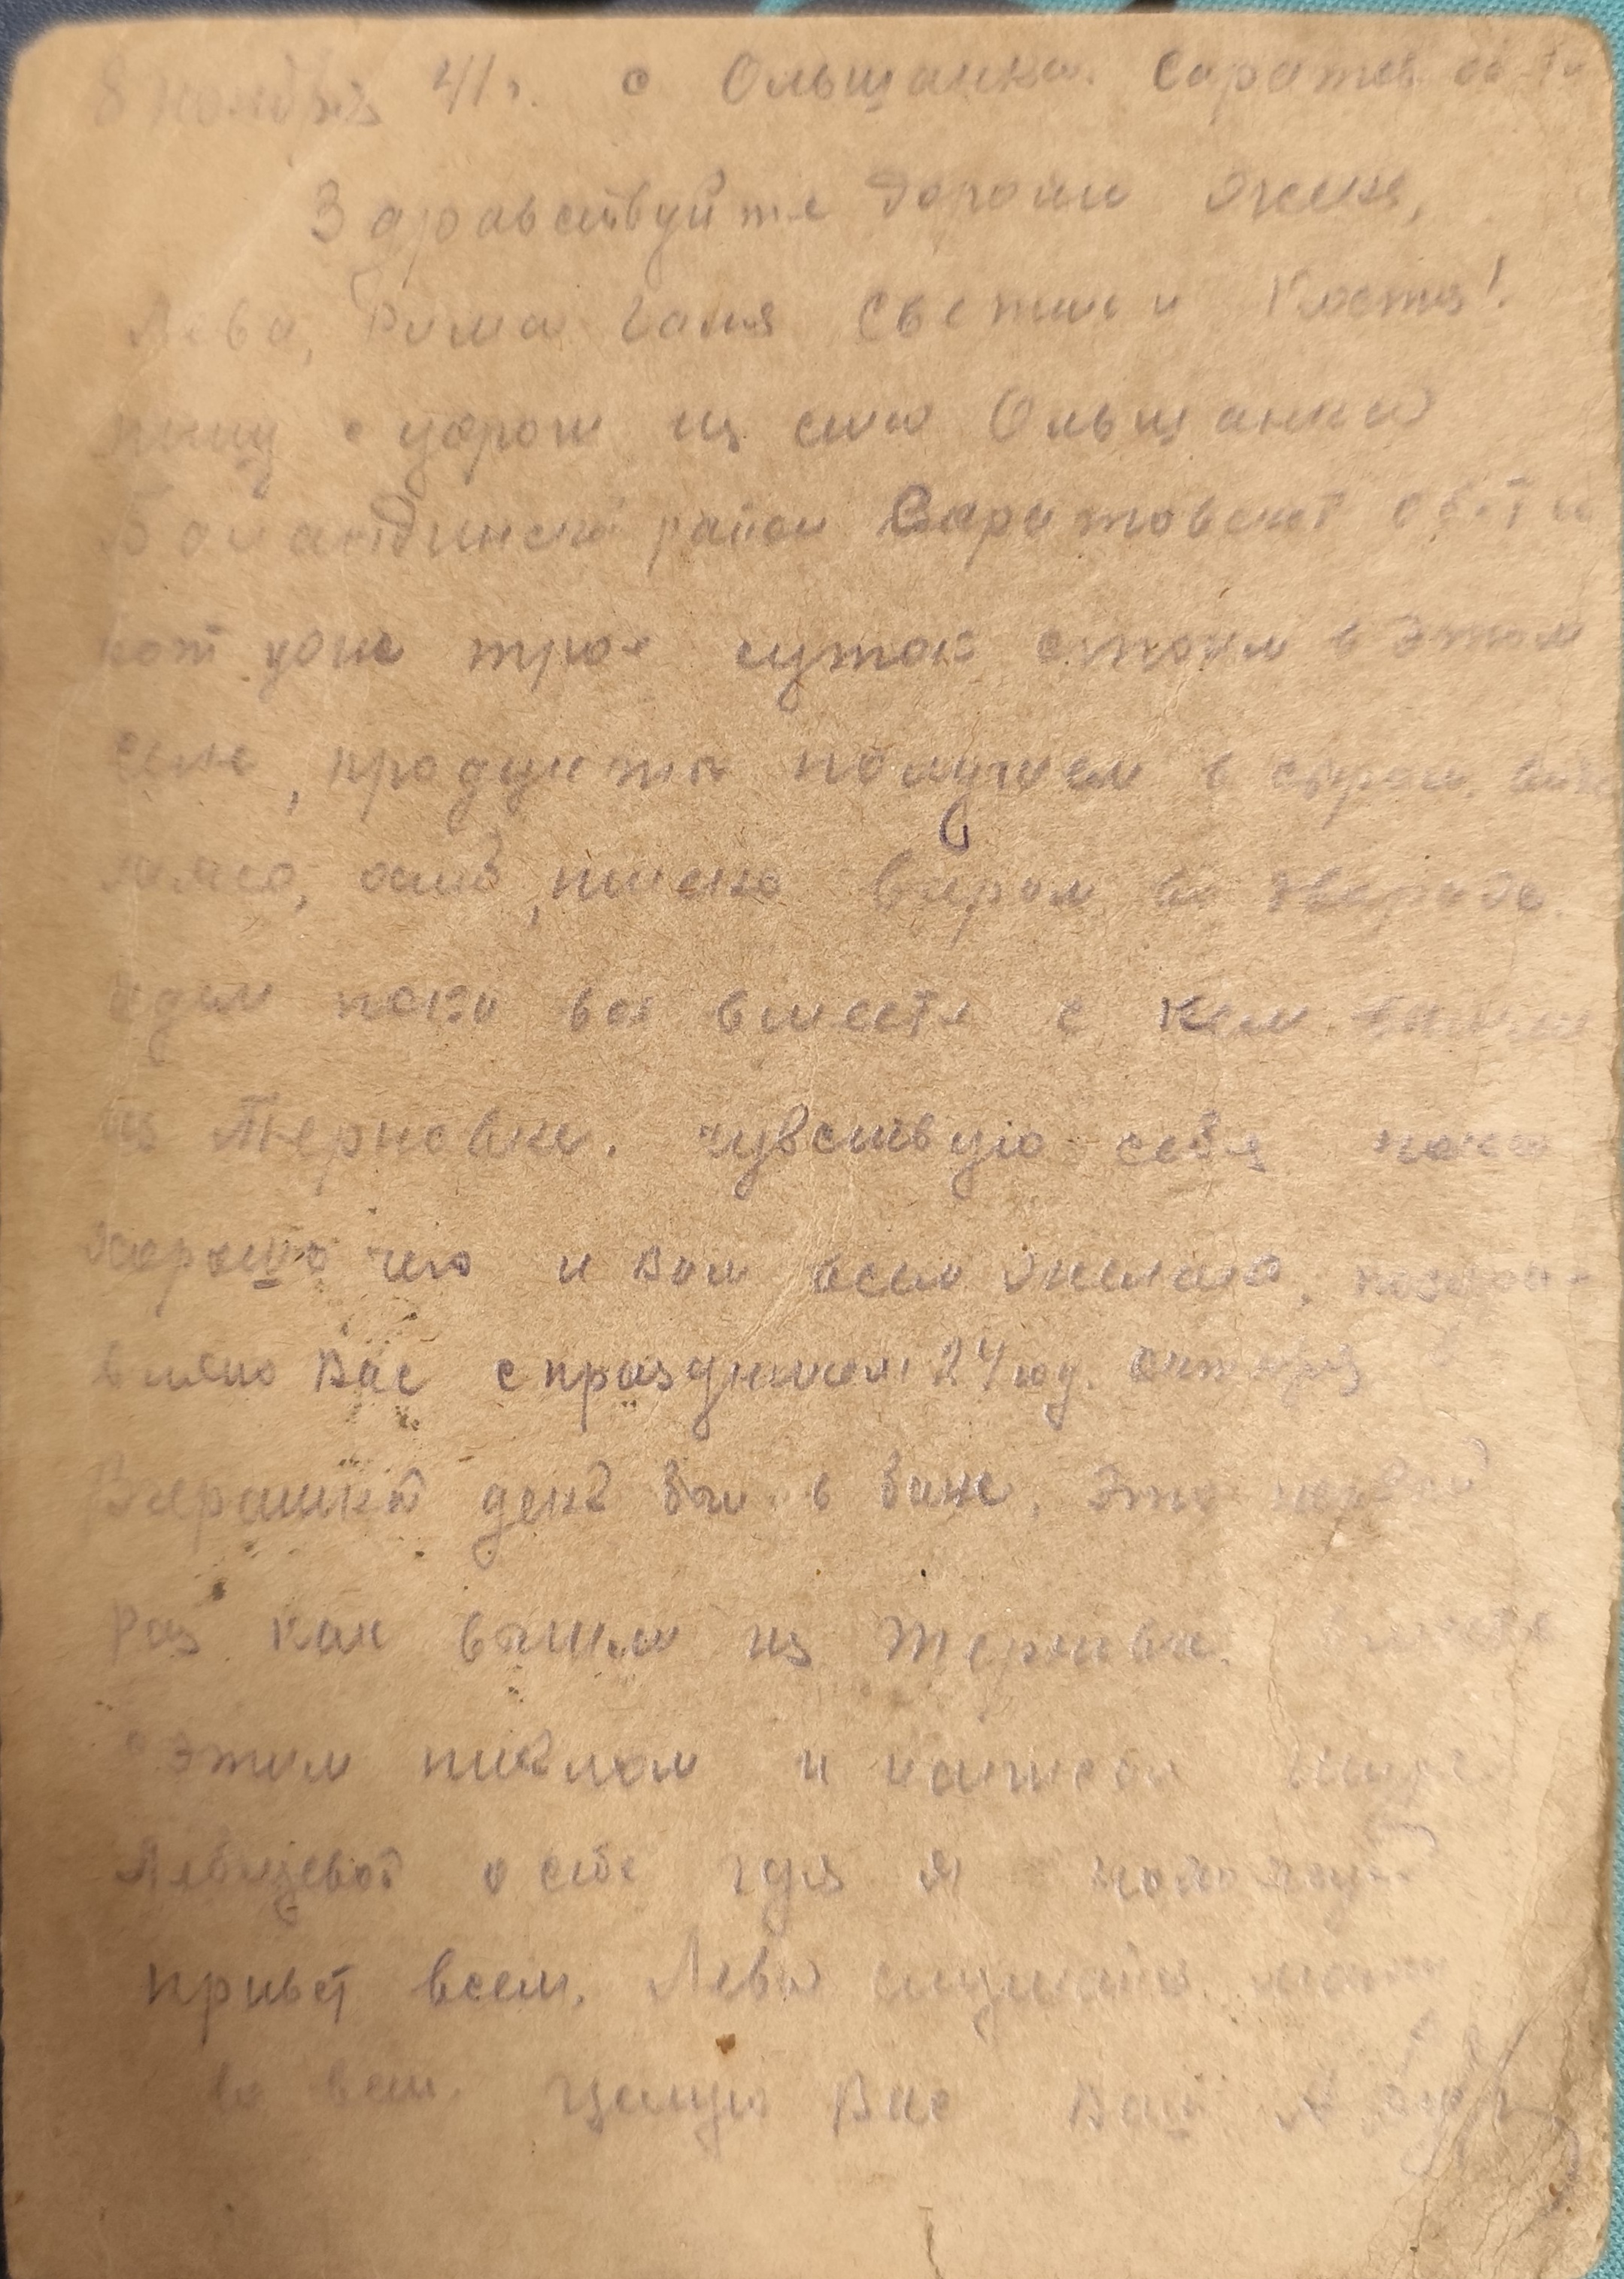 8 ноября 41г. с Ольшанка. Саратов обл
Здравствуйте дорогии Женя,
Лева, Рима Галя Светик и Костя!
пишу с дороги из села Ольшанки
Баландинский район Саратовской обл
вот уже трое суток стоим в этом
селе, продукты получаем в сыром виде
мясо, пшено варем
едем пока все вместе с кем
из Терновки. чувствую себя пока
хорошо чего и вам всем желаю, поздра-
вляю вас с праздником 24 год. октября
Вчерашний день был в бане. Это первый
раз как вышли из Терновки. вместе
с этим письмом и написал
о себе где я нахожусь
привет всем. Лева слушайся маму
во всем. Целую Вас Ваш